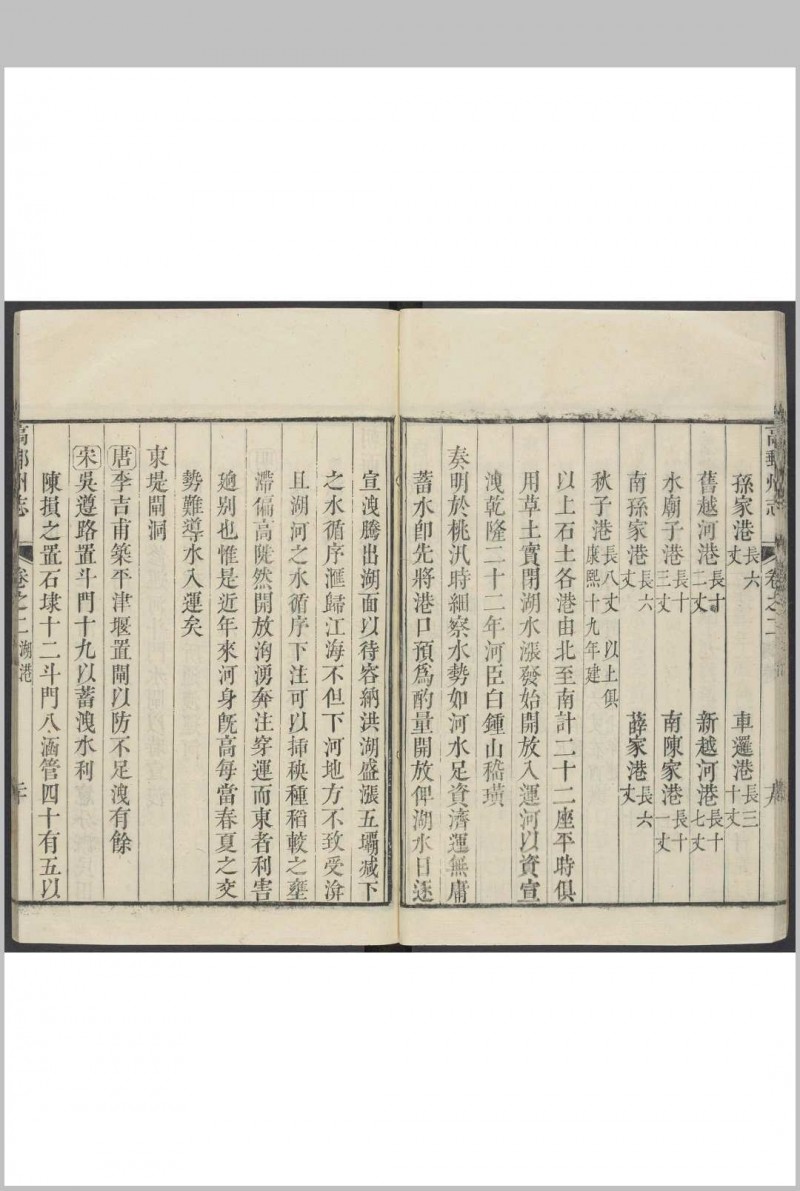 高郵州志 卷之二 十九
孫家港長六丈 車邏港長三十丈
舊越河港長十二丈 新越河港長十七丈
水廟子港長十三丈 南陳家港長十一丈
南孫家港長六丈 薛家港長六丈
秋子港長八丈 以上俱康熙十九年建
以上石土各港由北至南計二十二座平時俱
用草土實閉湖水漲發始開放入運河以資宣
洩乾隆二十二年河臣白鍾山嵇璜
奏明於桃汛時細察水勢如河水足資濟運無庸
蓄水卽先將港口預爲酌量開放俾湖水日逐
宣洩騰出湖面以待容納洪湖盛漲五壩減下
之水循序滙歸江海不但下河地方不致受渰
且湖河之水循序下注可以挿秧種稻較之壅
滯偏高陡然開放洶湧奔注穿運而東者利害
逈别也惟是近年來河身旣高每當春夏之交
勢難導水入運矣
東堤閘洞
唐李吉甫築平津堰置閘以防不足洩有餘
宋吳遵路置斗門十九以蓄洩水利
陳損之置石埭十二斗門八涵管四十有五以
高郵州志 卷之二 湖港 二十